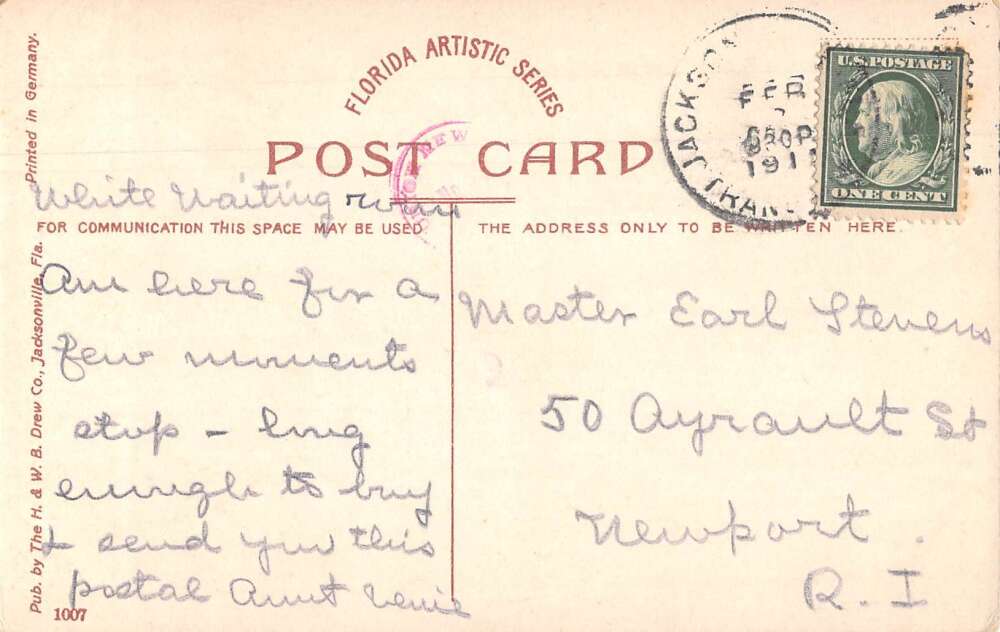 FLORIDA ARTISTIC SERIES
POST CARD
White Waiting room
FOR COMMUNICATION THIS SPACE MAY BE USED
THE ADDRESS ONLY TO BE WRITTEN HERE.
Am here for a
few moments
stop - long
enough to buy
& send you this
postal Aunt
Master Earl Stevens
50 Ayrault St
Newport.
R. I
JACKSON
FEB
1911
TRAN
U.S. POSTAGE
ONE CENT
NEW
Printed in Germany.
Pub. by The H. & W. B. Drew Co., Jacksonville, Fla.
1007